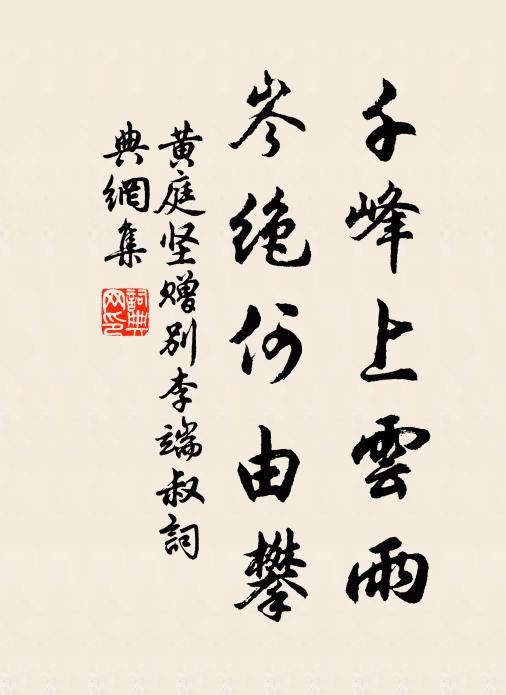 千峰上雲雨
岑绝何由攀
黄庭坚赠别李端叔詞
典網集
詞典网印